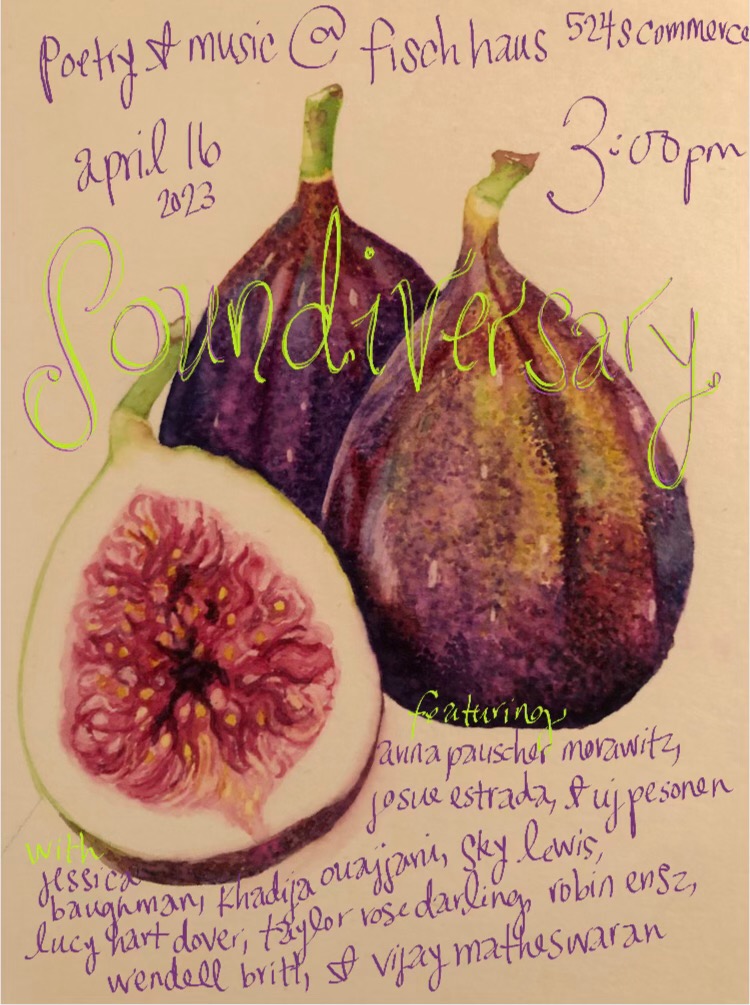 poetry & music @ fischhaus 524 s commerce
april 16
2023
3:00pm
Soundiversary
featuring
anna pauscher morawitz,
josue estrada, & uj pesonen
with
jessica
baughman, khadija ouajjani, sky lewis,
lucy hart dover, taylor rose darling, robin ensz,
wendell britt, & vijay matheswaran